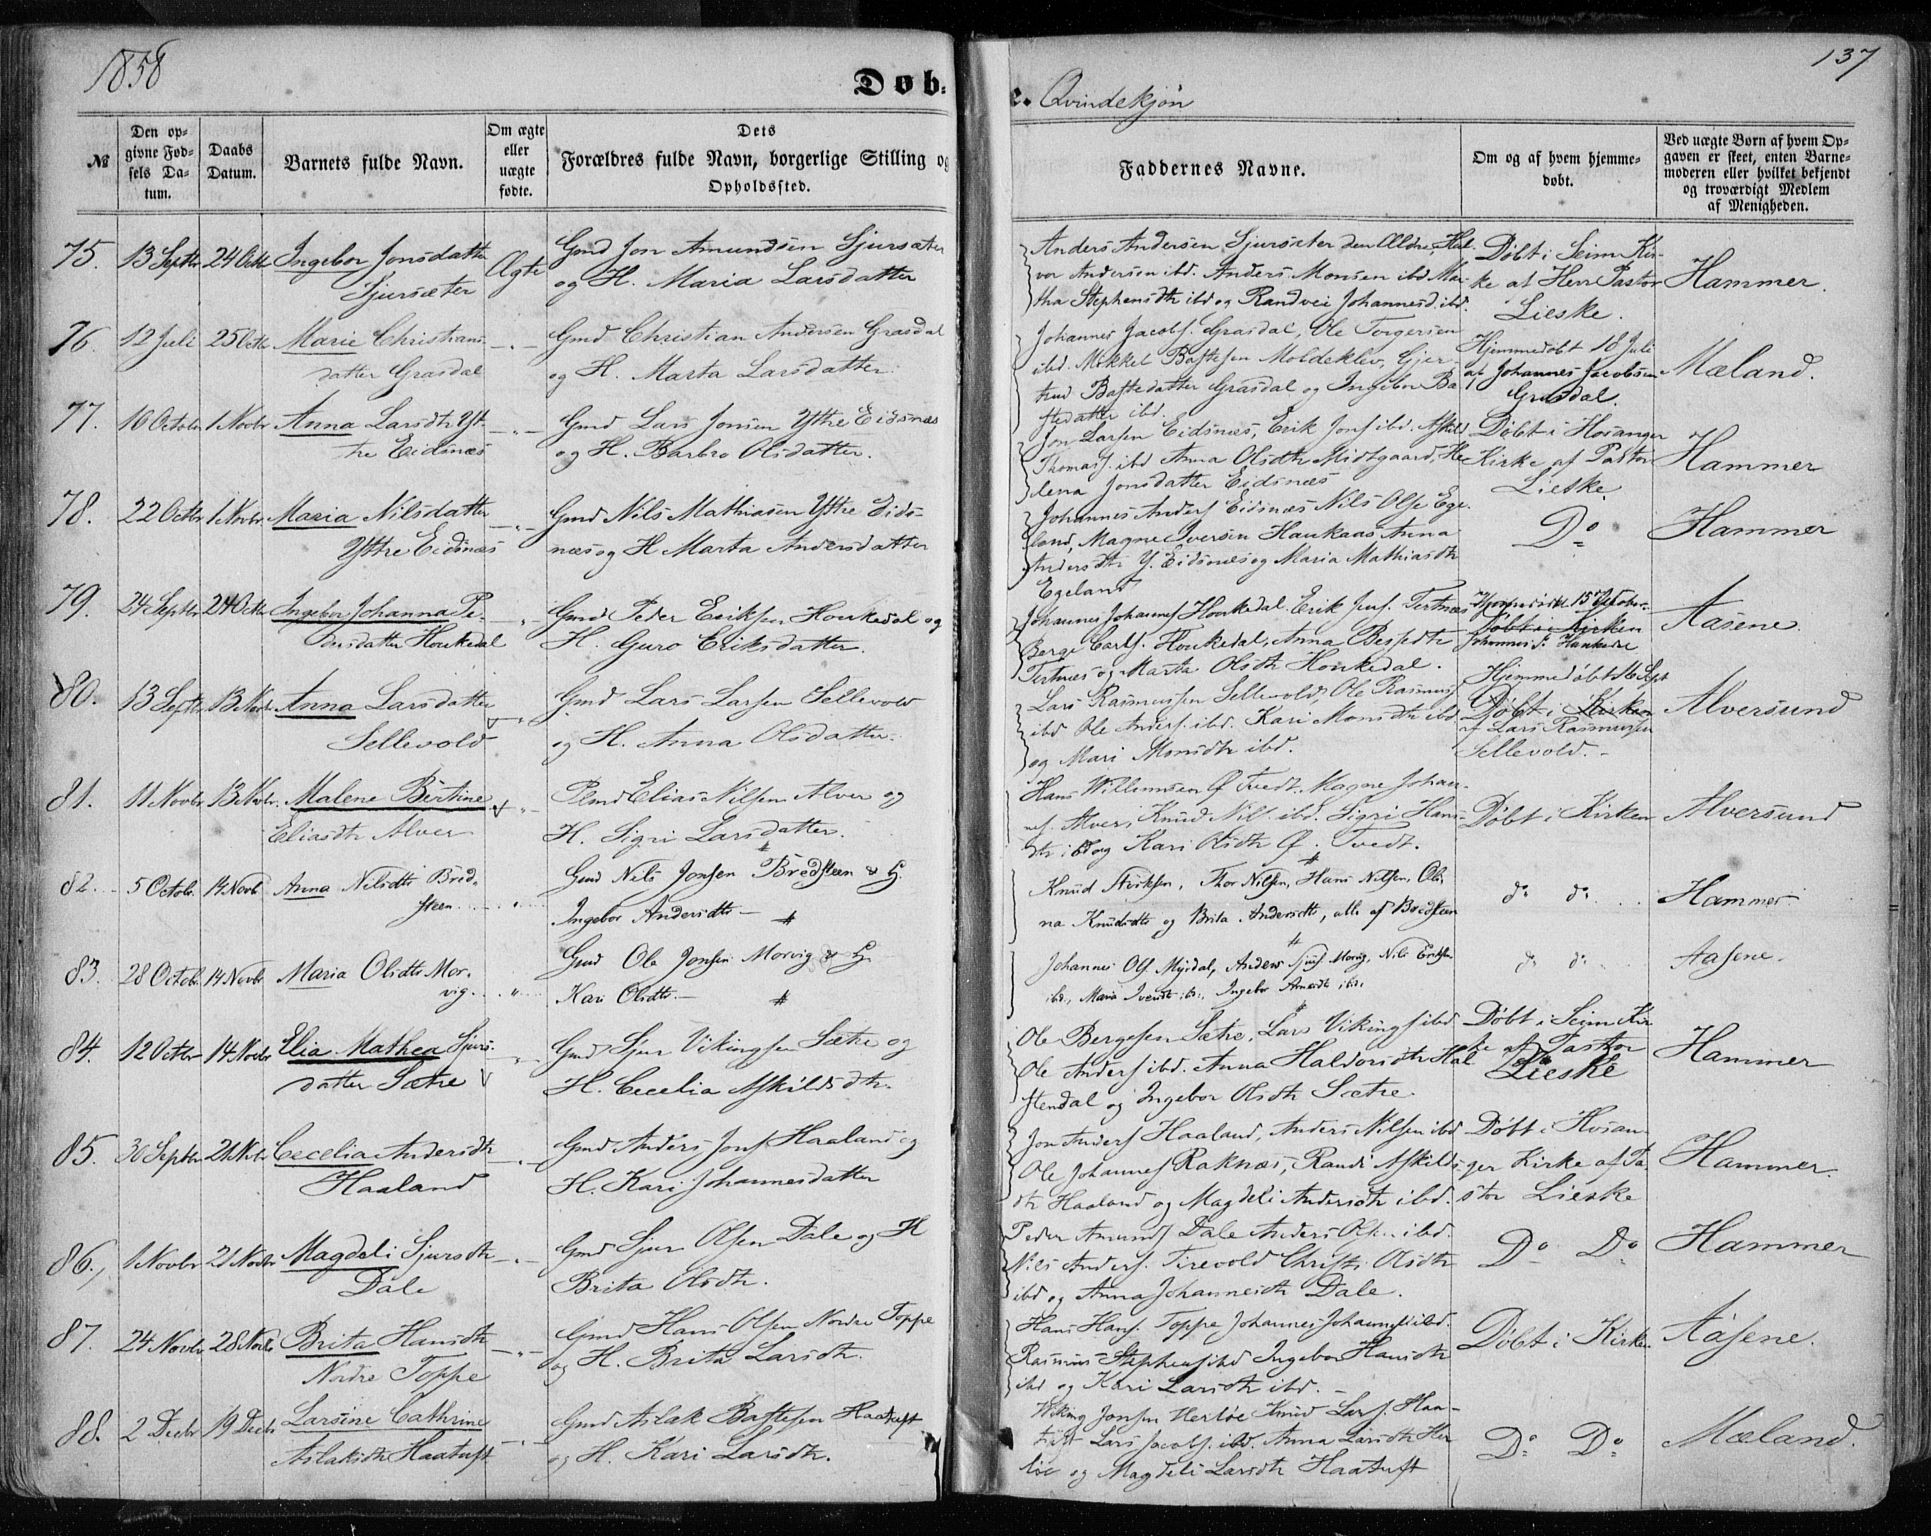 1858
137
Døb.
e. Qvindekjøn
№
Den op-
givne Fød-
sels Da-
tum.
Daabs
Datum.
Barnets fulde Navn.
Om ægte
eller
uægte
fødte.
Dets
Forældres fulde Navn, borgerlige Stilling og
Opholdssted.
Faddernes Navne.
Om og af hvem hjemme-
døbt.
Ved uægte Børn af hvem Op-
gaven er skeet, enten Barne-
moderen eller hvilket bekjendt
og troværdigt Medlem
af Menigheden.
75. 13 Septbr 24 Octbr Ingebor Jonsdatter
Sjursæter
Ægte
Gmd Jon Amundsen Sjursæter
og H. Maria Larsdatter
Anders Andersen Sjursæter den Ældre, Hal-
vor Andersen ibd. Anders Monsen ibd. Mar-
tha Stephensdtr ibd og Randvei Johannesd. ibd.
Døbt i Seim Kir-
ke af Herr Pastor
Lieske.
Hammer.
76. 12 Juli 25 Octbr Marie Christians-
datter Grasdal
Gmd Christian Andersen Grasdal
og H. Marta Larsdatter.
Johannes Jacobs. Grasdal, Ole Torgersen
ibd. Mikkel Bastesen Moldeklev, Gjer-
trud Bastedatter Grasdal og Ingebor Ba-
stedatter ibd.
Hjemmedøbt 18 Juli
af Johannes Jacobsen
Grasdal.
Mæland.
77. 10 Octobr 1 Novbr Anna Larsdtr Yt-
tre Eidsnæs
Gmd Lars Jonsen Yttre Eidsnæs
og H. Barbro Olsdatter.
Jon Larsen Eidsnæs, Erik Jons. ibd. Askild
Thomass. ibd Anna Olsdtr Midtgaard, He-
lena Jonsdatter Eidsnæs
Døbt i Hosanger
Kirke af Pastor
Lieske
Hammer
78. 22 Octbr 1 Novbr Maria Nilsdatter
Yttre Eidsnæs
Gmd Nils Mathiasen Yttre Eids-
næs og H Marta Andersdatter
Johannes Anders. Eidsnæs Nils Olse Ege-
land, Magne Iversen Haukaas Anna
Andersdtr Y. Eidsnæs og Maria Mathiasdtr
Egeland
Do
Hammer
79. 24 Septbr 24 Octbr Ingebor Johanna Pe-
dersdatter Houkedal
Gmd Peder Eriksen Houkedal og
H. Guro Eriksdatter.
Johannes Johannes. Houkedal. Erik Jens. Tertnæs
Berge Carls. Houkedal, Anna Bessedtr
Tertnæs og Marta Olsdtr Houkedal.
Hjemmedøbt 15 October
Døbt i Kirken
Aasene.
80. 13 Septbr 13 Novbr Anna Larsdatter
Sellevold
Gmd Lars Larsen Sellevold
og H. Anna Olsdatter.
Lars Rasmussen Sellevold, Ole Rasmus.
ibd Ole Anders. ibd. Kari Monsdtr ibd
og Mari Monsdtr ibd.
Hjemmedøbt 16 Sept
Døbt i Kirken
af Lars Rasmussen
Sellevold.
Alversund
81. 11 Novbr 13 Novbr Malene Bertine
Eliasdtr Alver
Plmd Elias Nilsen Alver og
H. Sigri Larsdatter.
Hans Willumsen Ø Tvedt, Magne Johan-
nes. Alver, Knud Nils. ibd. Sigri Hans-
dtr ibd og Kari Olsdtr Ø. Tvedt.
Døbt i Kirken
Alversund
82. 5 Octobr. 14 Novb Anna Nilsdtr Bred-
steen
Gmd Nils Jonsen Bredsteen & H.
Ingebor Andersdtr
Knud Steffens., Thor Nilsen, Hans Nilsen, Oli-
na Knudsdtr og Brita Andersdtr, alle af Bredsteen
do do
Hammer
83. 28 Octobr. 14 Novbr Maria Olsdtr Mor-
vig
Gmd Ole Jonsen Morvig & H.
Kari Olsdtr
Johannes Ols. Myrdal, Anders Sjurs. Morvig, Nils Eriksen
ibd., Maria Iversdtr ibd., Ingebor Amesdt ibd.
do do
Aasene.
84. 12 Octbr 14 Novbr Elia Mathea Sjurs-
datter Sætre
Gmd Sjur Vikingsen Sætre og
H. Cecelia Askildsdtr.
Ole Bergesen Sætre, Lars Vikings. ibd
Ole Anders. ibd. Anna Haldorsdtr Hal-
stendal og Ingebor Olsdtr Sætre.
Døbt i Seim Kir
ke af Pastor
Lieske
Hammer
85. 30 Septbr 21 Novbr Cecelia Andersdtr
Haaland
Gmd Anders Jons. Haaland og
H. Kari Johannesdatter
Jon Anders. Haaland, Anders Nilsen ibd
Ole Johannes. Raknæs, Randi Askilds-
dtr Haaland og Magdeli Andersdtr ibd.
Døbt i Hosan-
ger Kirke af Pa-
stor Lieske
Hammer.
86. 1 Novbr 21 Novbr Magdeli Sjursdtr
Dale
Gmd Sjur Olsen Dale og H
Brita Olsdtr.
Peder Amunds. Dale Anders Ols. ibd.
Nils Anders. Tirevold Christi Olsdtr
ibd og Anna Johannesdtr Dale.
Do Do
Hammer
87. 24 Novbr 28 Novbr Brita Hansdtr
Nordre Toppe
Gmd Hans Olsen Nordre Toppe
og H. Brita Larsdtr.
Hans Hans. Toppe Johannes Johannes. ibd.
Rasmus Stephens. ibd Ingebor Hansdtr
ibd og Kari Larsdtr ibd.
Døbt i Kirken
Aasene.
88. 2 Decbr 19 Decbr Larsine Cathrine
Aslaksdtr Haatuft
Gmd Aslak Bastesen Haatuft
og H. Kari Larsdtr.
Viking Jonsen Herløe Knud Lars. Haa-
tuft Lars Jacobs. ibd. Anna Larsdtr Her-
løe og Magdeli Larsdtr Haatuft
Do Do
Mæland.